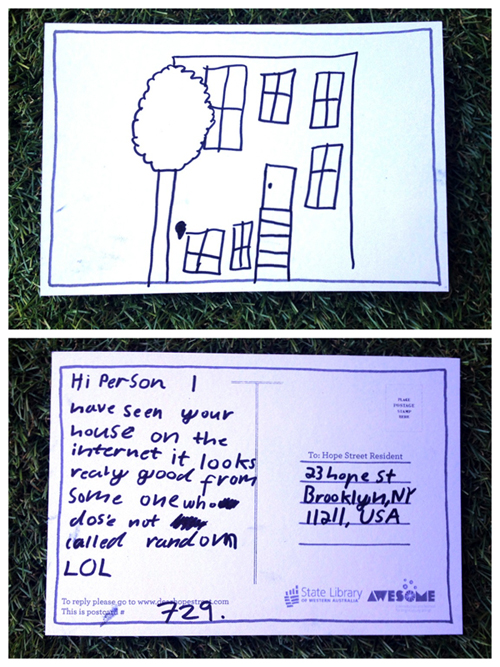 Hi Person I
have seen your
house on the
internet it looks
realy good from
some one who
dos'e not
called random
LOL
To reply please go to www.dearhopestreet.com
This is postcard #
729.
PLACE
POSTAGE
STAMP
HERE
To: Hope Street Resident
23 hope st
Brooklyn, NY
11211, USA
State Library
OF WESTERN AUSTRALIA
AWESOME